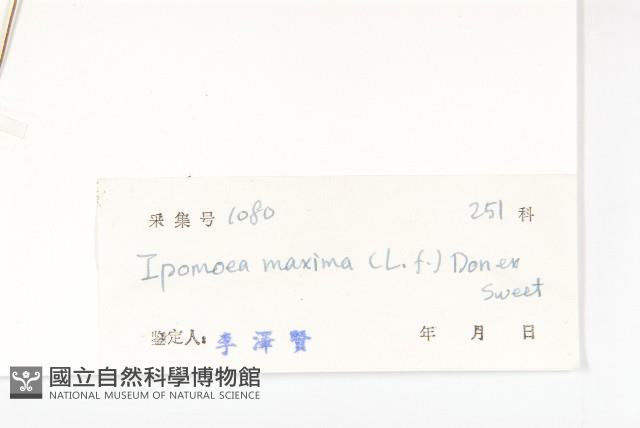 采集号 1080 251 科
Ipomoea maxima (L. f.) Don ex
Sweet
鉴定人: 李澤賢 年 月 日
國立自然科學博物館
NATIONAL MUSEUM OF NATURAL SCIENCE